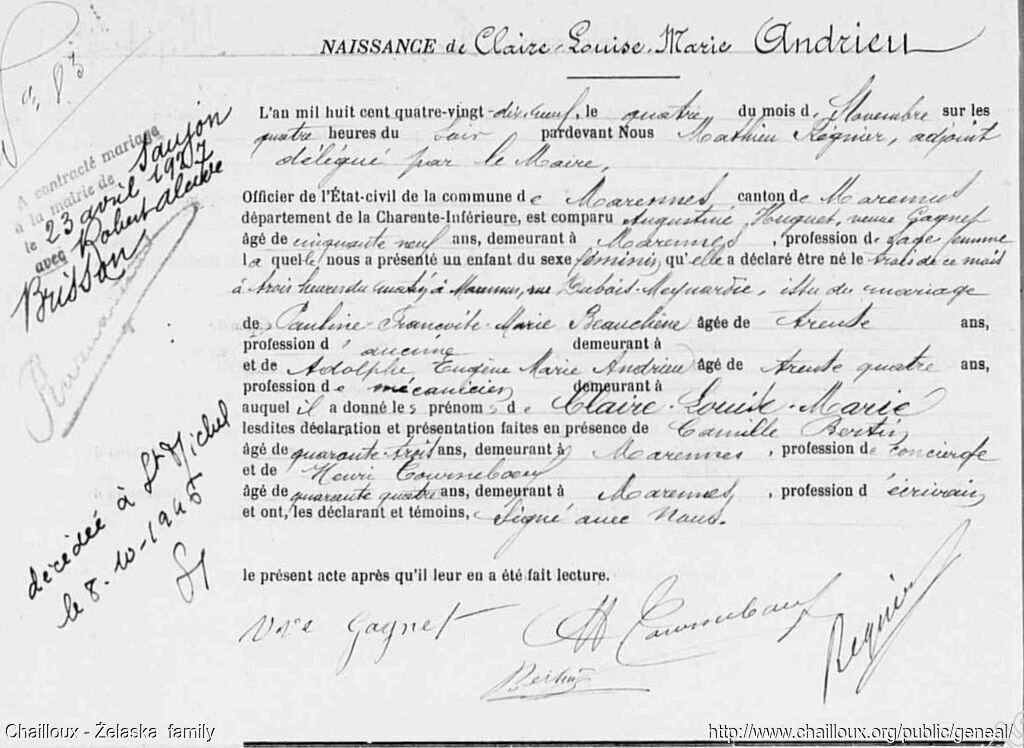 NAISSANCE de Claire-Louise-Marie Andrieu
L'an mil huit cent quatre-vingt-dix-neuf, le quatre du mois de Novembre sur les
quatre heures du Soir pardevant Nous Mathieu Régnier, adjoint
délégué par le Maire,
Officier de l'État-civil de la commune de Marennes canton de Marennes
département de la Charente-Inférieure, est comparu Augustine Huguet, veuve Gagnet
âgé de cinquante neuf ans, demeurant à Marennes, profession de sage femme
laquelle nous a présenté un enfant du sexe féminin, qu'elle a déclaré être né le trois de ce mois
à trois heures du matin, à Marennes, rue Dubois-Meynardie, issu du mariage
de Pauline-Françoise-Marie Beauchêne âgée de trente ans,
profession d'aucune demeurant à
et de Adolphe Eugène Marie Andrieu âgé de trente quatre ans,
profession de mécanicien demeurant à
auquel il a donné les prénoms de Claire-Louise-Marie
lesdites déclaration et présentation faites en présence de Camille Bertin
âgé de quarante-trois ans, demeurant à Marennes, profession de concierge
et de Henri Tourneboeuf
âgé de quarante quatre ans, demeurant à Marennes, profession d'écrivain
et ont, les déclarant et témoins, Signé avec Nous.
le présent acte après qu'il leur en a été fait lecture.
Vve Gagnet
H Tourneboeuf
Bertin
Régnier
No 83
A contracté mariage
à la mairie de Saujon
le 23 avril 1927
avec Robert
Brisson
décédée à St Michel
le 8-10-1945
Chailloux - Żelaska family
http://www.chailloux.org/public/geneal/